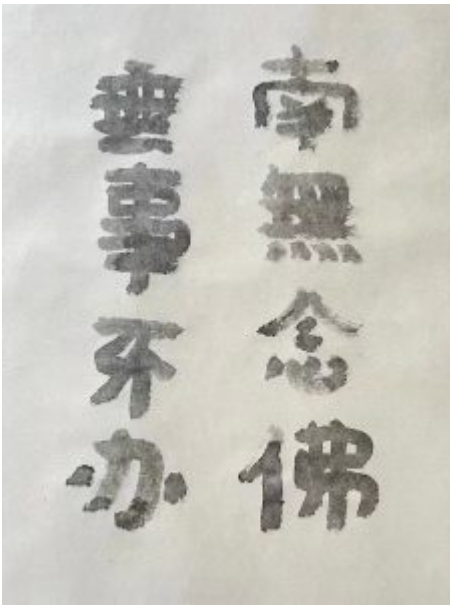 南無念佛
無事不办